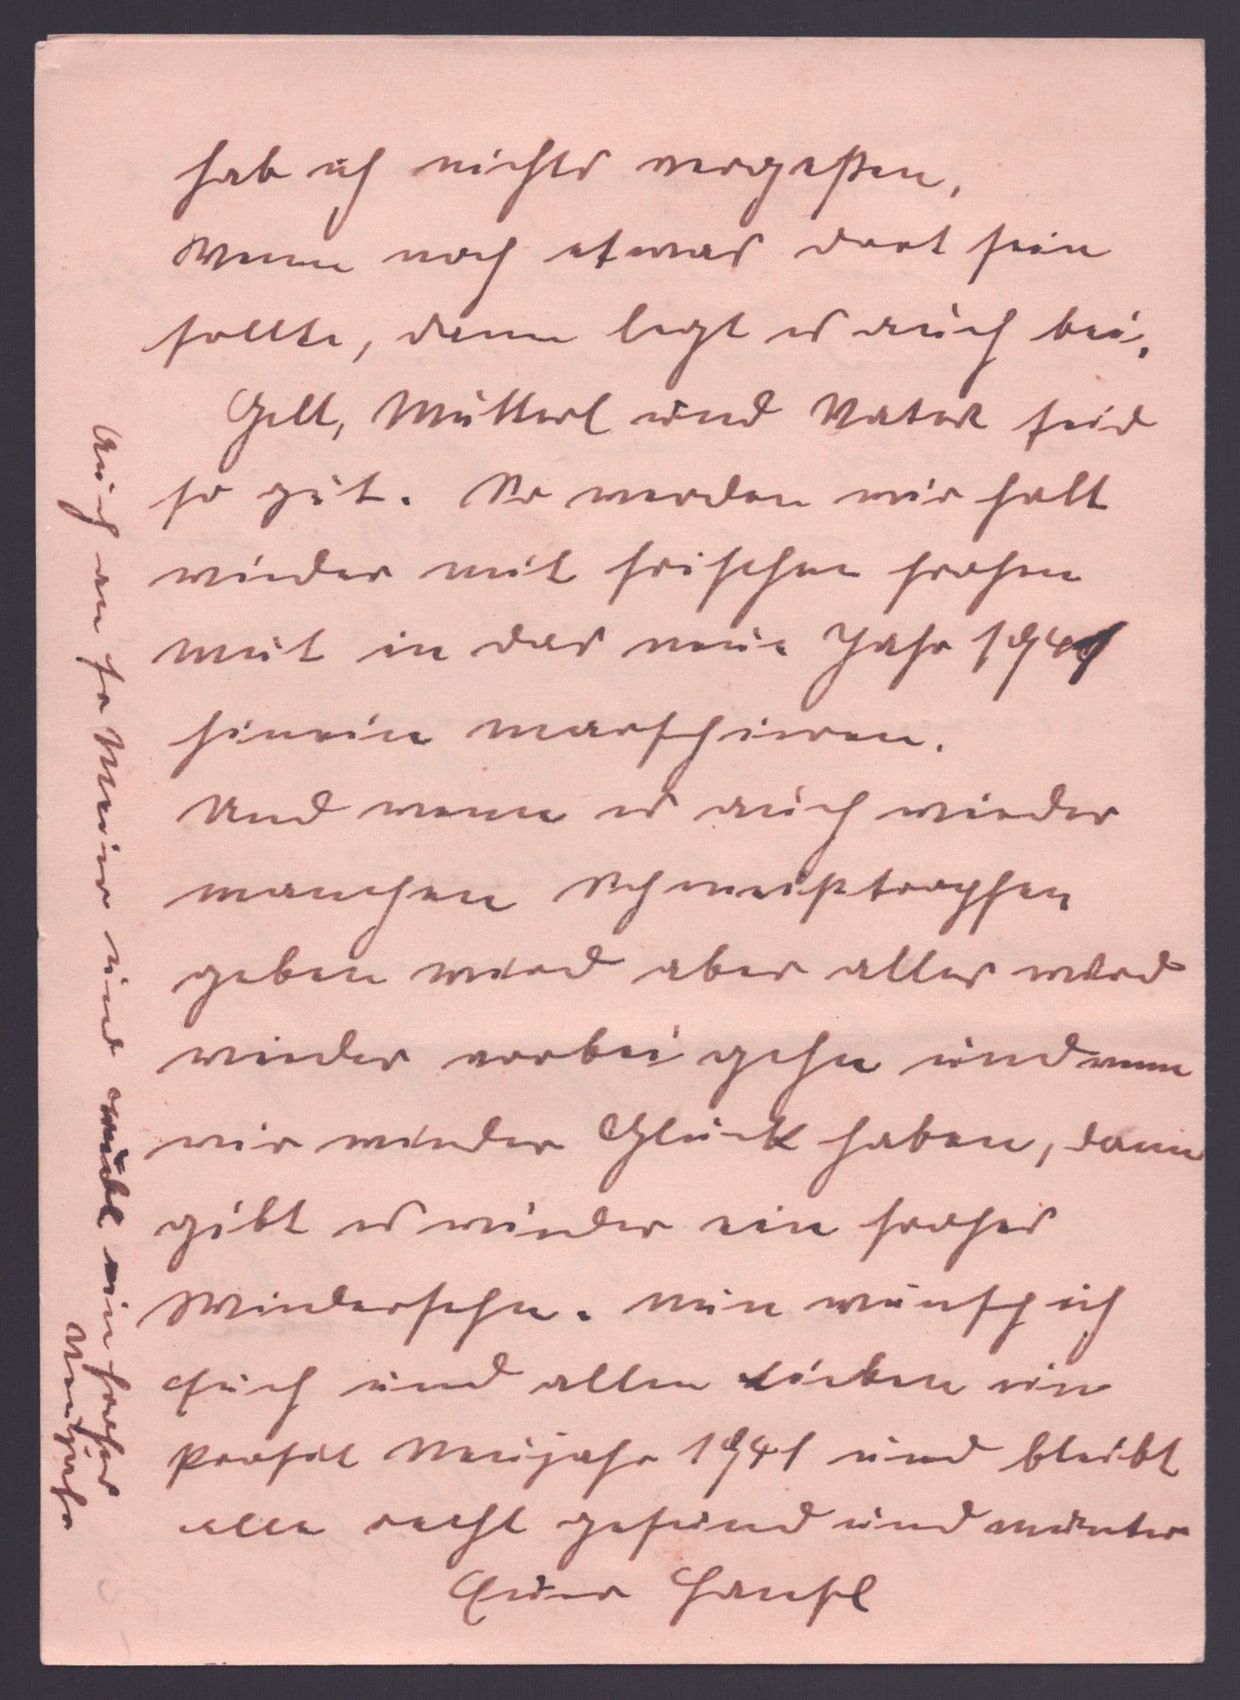 hab ich nichts vergeßen,
Wenn noch etwas dort sein
sollte, dann legt es auch bei.
Gell, Mutterl und Vater seid
so gut. So werden wir halt
wieder mit frischen frohen
Mut in das neue Jahr 1941
hinein marschieren.
Und wenn es auch wieder
manchen Schweißtropfen
geben wird aber alles wird
wieder vorbei gehn und wenn
wir wieder Glück haben, dann
gibt es wieder ein frohes
Wiedersehn. Nun wünsch ich
Euch und allen Lieben ein
Prosit Neujahr 1941 und bleibt
alle recht gesund und munter
Euer Hansl
Auch an Fr Meier und ein frohes
Neujahr